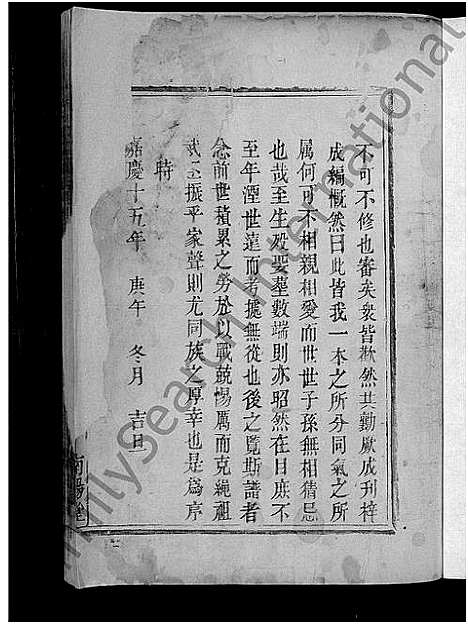 不可不修也審矣衆皆歡然共勷厥成刊梓
成編慨然曰此皆我一本之所分同氣之所
屬何可不相親相愛而世世子孫無相猜忌
也哉至生殁娶墓數端則亦昭然在目庶不
至年湮世遠而考據無從也後之覽斯譜者
念前世積累之勞於以戰兢惕厲而克繩祖
武丕振乎家聲則尤同族之厚幸也是為序
時
嘉慶十五年 庚午 冬月 吉旦
南陽堂
FamilySearch International